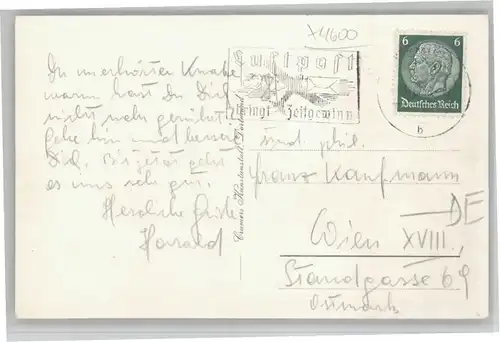 +4600
Luftpost
bringt Zeitgewinn
6 6
Deutsches Reich
b
Du unerhörter Knabe
warum hast Du Dich
nicht mehr gerührt.
Gehe hin und bessere
Dich. Bis jetzt geht
es uns sehr gut.
Herzliche Grüße
Harald
Cramers Kunstanstalt, Dortmund
cand. phil.
Franz Kaufmann
DE
Wien XVIII.,
Standgasse 69
Ostmark